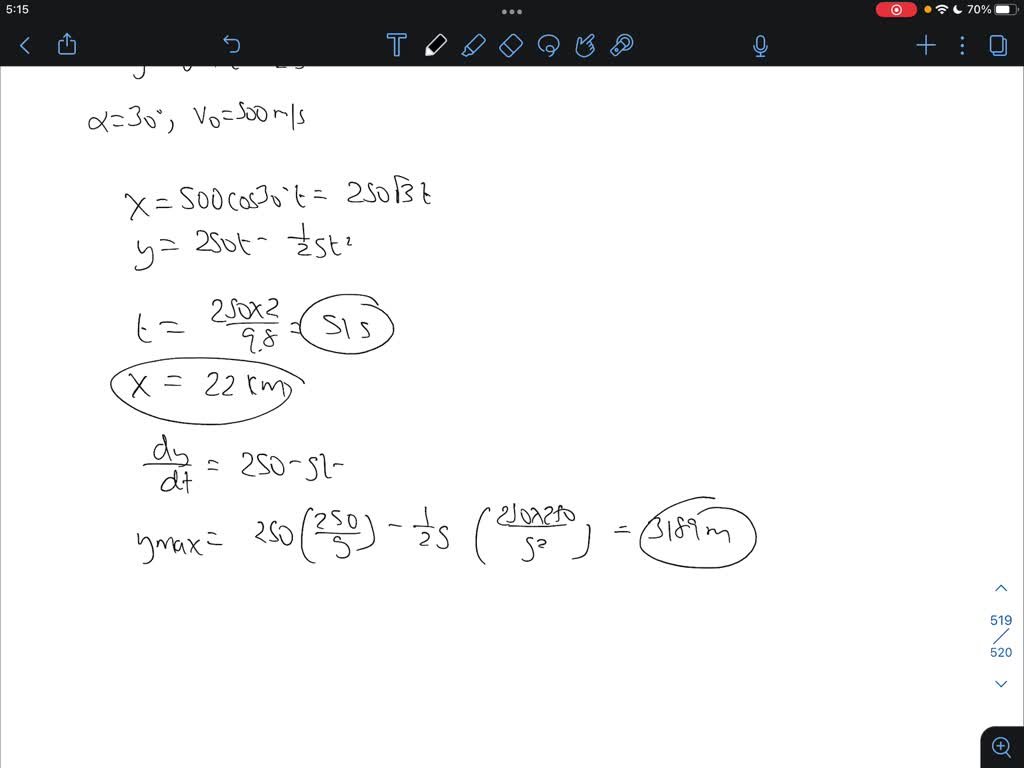 5:15
70%
α=30°, V0=500m/s
x=500cos30°t= 250√3t
y= 250t- 1/2gt²
t= 250x2/9.8 = 51s
x = 22 km
dy/dt = 250-gt
ymax= 250(250/g) - 1/2g (250x250/g²) = 3189m
519
520